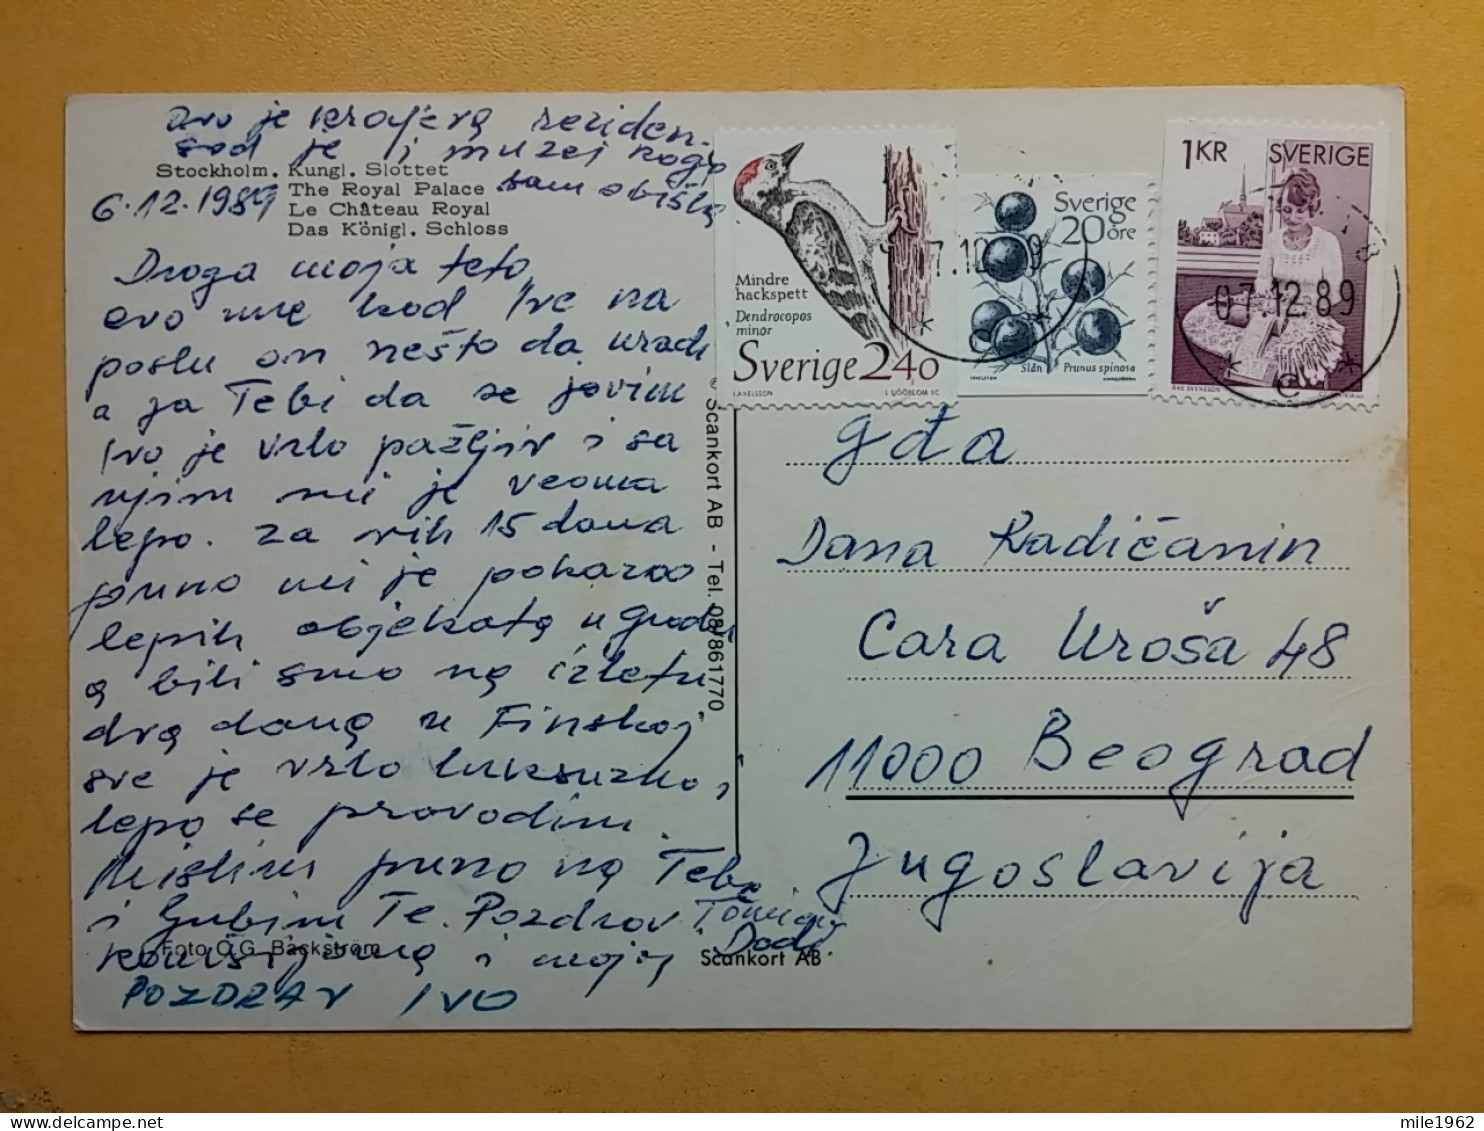 Ovo je kraljeva reziden.
sad je i muzej koga
sam obišla
Stockholm. Kungl. Slottet
The Royal Palace
Le Château Royal
Das Königl. Schloss
6.12.1989
Draga moja teto,
evo me kod Ive na
poslu on nešto da uradi
a ja Tebi da se javim
Ivo je vrlo pažljiv i sa
njim mi je veoma
lepo. Za ovih 15 dana
puno mi je pokazao
lepih objekata u gradu
a bili smo na izletu
dva dana u Finskoj
sve je vrlo luksuzno i
lepo se provodim.
Mislim puno na Tebe
i ljubim Te. Pozdrav Tomici
komšijama i mojoj Dodi
POZDRAV IVO
Foto O.G. Bäckström
Scankort AB
© Scankort AB - Tel. 08/861770
Mindre
hackspett
Dendrocopos
minor
Sverige 240
Sverige
20 öre
Slån Prunus spinosa
1KR SVERIGE
07.12.89
gđa
Dana Radičanin
Cara Uroša 48
11000 Beograd
Jugoslavija
mile1962